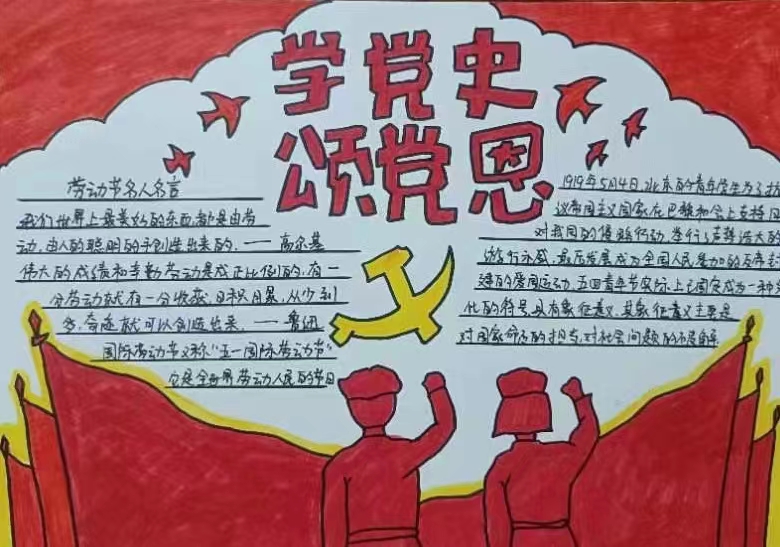 学党史
颂党恩
劳动节名人名言
我们世界上最美好的东西,都是由劳
动、由人的聪明的手创造出来的。——高尔基
伟大的成绩和辛勤劳动是成正比例的,有一
分劳动就有一分收获,日积月累,从少到
多,奇迹就可以创造出来。——鲁迅
国际劳动节又称“五一国际劳动节”
它是全世界劳动人民的节日
1919年5月4日,北京的青年学生为了抗
议帝国主义国家在巴黎和会上支持日
对我国的侵略行动,举行了声势浩大的
游行示威,最后发展成为全国人民参加的反帝封
建的爱国运动,五四青年节实际上已固定成为一种
化的符号,具有象征意义,其象征意义主要是
对国家命名的担当,对社会问题的